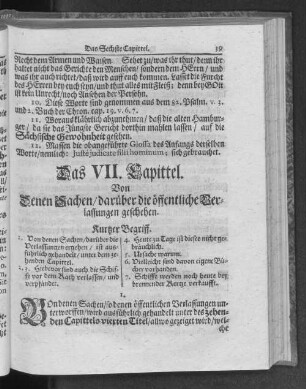 Das Sechste Capittel. 19
Recht dem Armen und Waysen. Sehet zu/ was ihr thut/ denn ihr
haltet nicht das Gerichte den Menschen/ sondern dem HErrn/ und
was ihr auch richtet/ daß wird auff euch kommen. Lasset die Furcht
des HErrn bey euch seyn/ und thut alles mit Fleiß: denn bey GOtt
ist kein Unrecht/ noch Ansehen der Persohn.
10. Diese Worte sind genommen aus dem 82. Psalm. v. 1.
und 2. Buch der Chron. cap. 19. v. 6. 7.
11. Woraus klährlich abzunehmen/ daß die alten Hambur-
ger/ da sie das Jüngste Gericht dorthin mahlen lassen/ auf die
Sächsische Gewohnheit gesehen.
12. Massen die obangeführte Glossa des Anfangs derselben
Worte/ nemlich: Justè judicate filii hominum; sich gebrauchet.
Das VII. Capittel.
Von
Denen Sachen/ darüber die öffentliche Ver-
lassungen geschehen.
Kurtzer Begriff.
1. Von denen Sachen/ darüber die
Verlassungen ergehen/ ist aus-
führlich gehandelt/ unter dem ze-
henden Capittel.
verpfändet.
4. Heute zu Tage ist dieses nicht ge-
bräuchlich.
5. Ursache warum.
6. Vielleicht sind davon eigene Bü-
cher vorhanden.
7. Schiffe werden noch heute bey
brennender Kertze verkaufft.
1.
Von denen Sachen/ so denen öffentlichen Verlassungen un-
terworffen/ wird ausführlich gehandelt unter des zehen-
den Capittels vierten Titel/ allwo gezeiget wird/ wel-
che